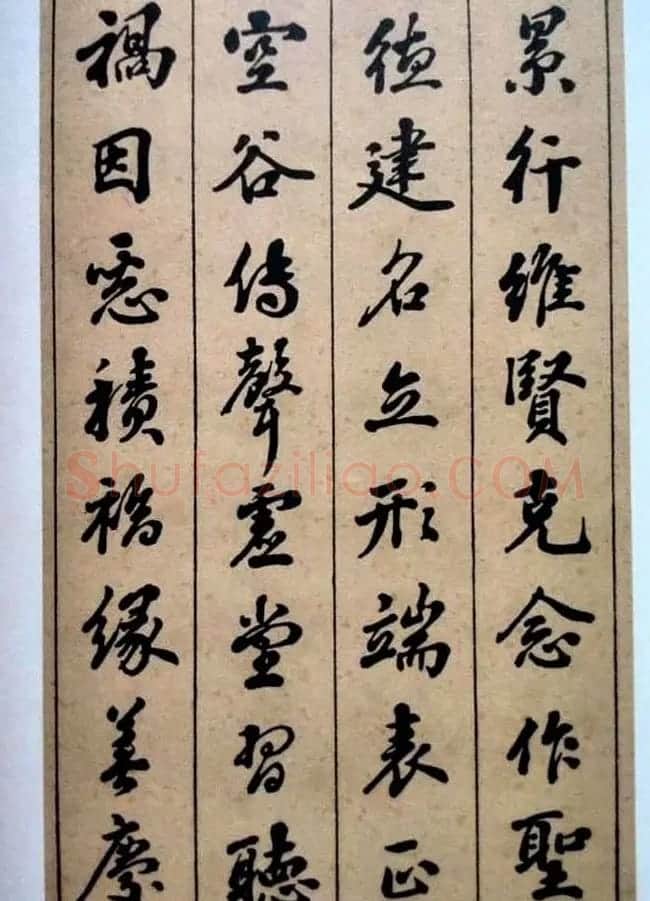 景行維賢克念作聖
德建名立形端表正
空谷傳聲虛堂習聽
禍因惡積福緣善慶
Shufaziliao.COM